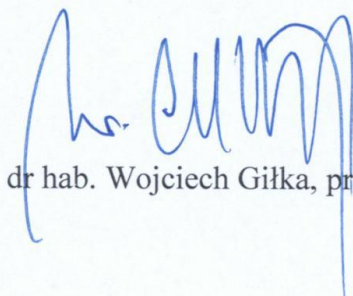 dr hab. Wojciech Giłka, pr